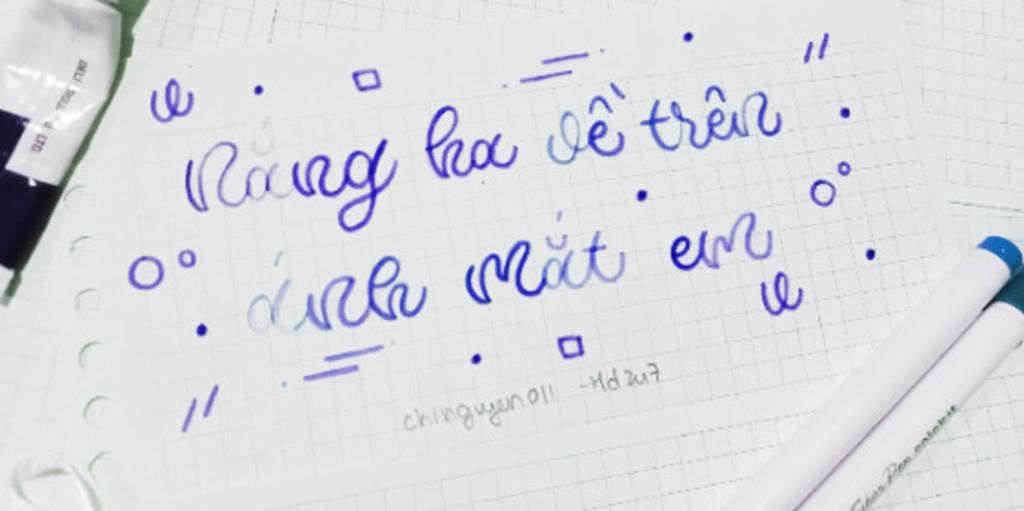 Nắng hạ về trên
ánh mắt em
chinguyen011 -Hd2u7